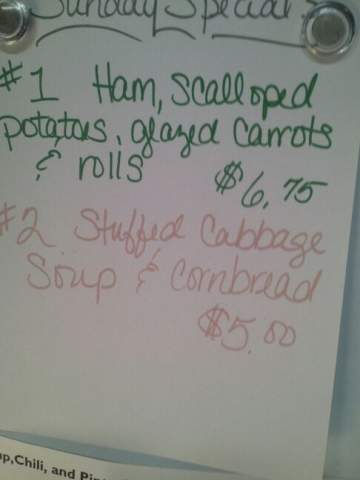 Sunday Specials
#1 Ham, Scalloped
potatoes, glazed Carrots
& rolls $6.75
#2 Stuffed Cabbage
Soup & Cornbread
$5.00
Chili, and